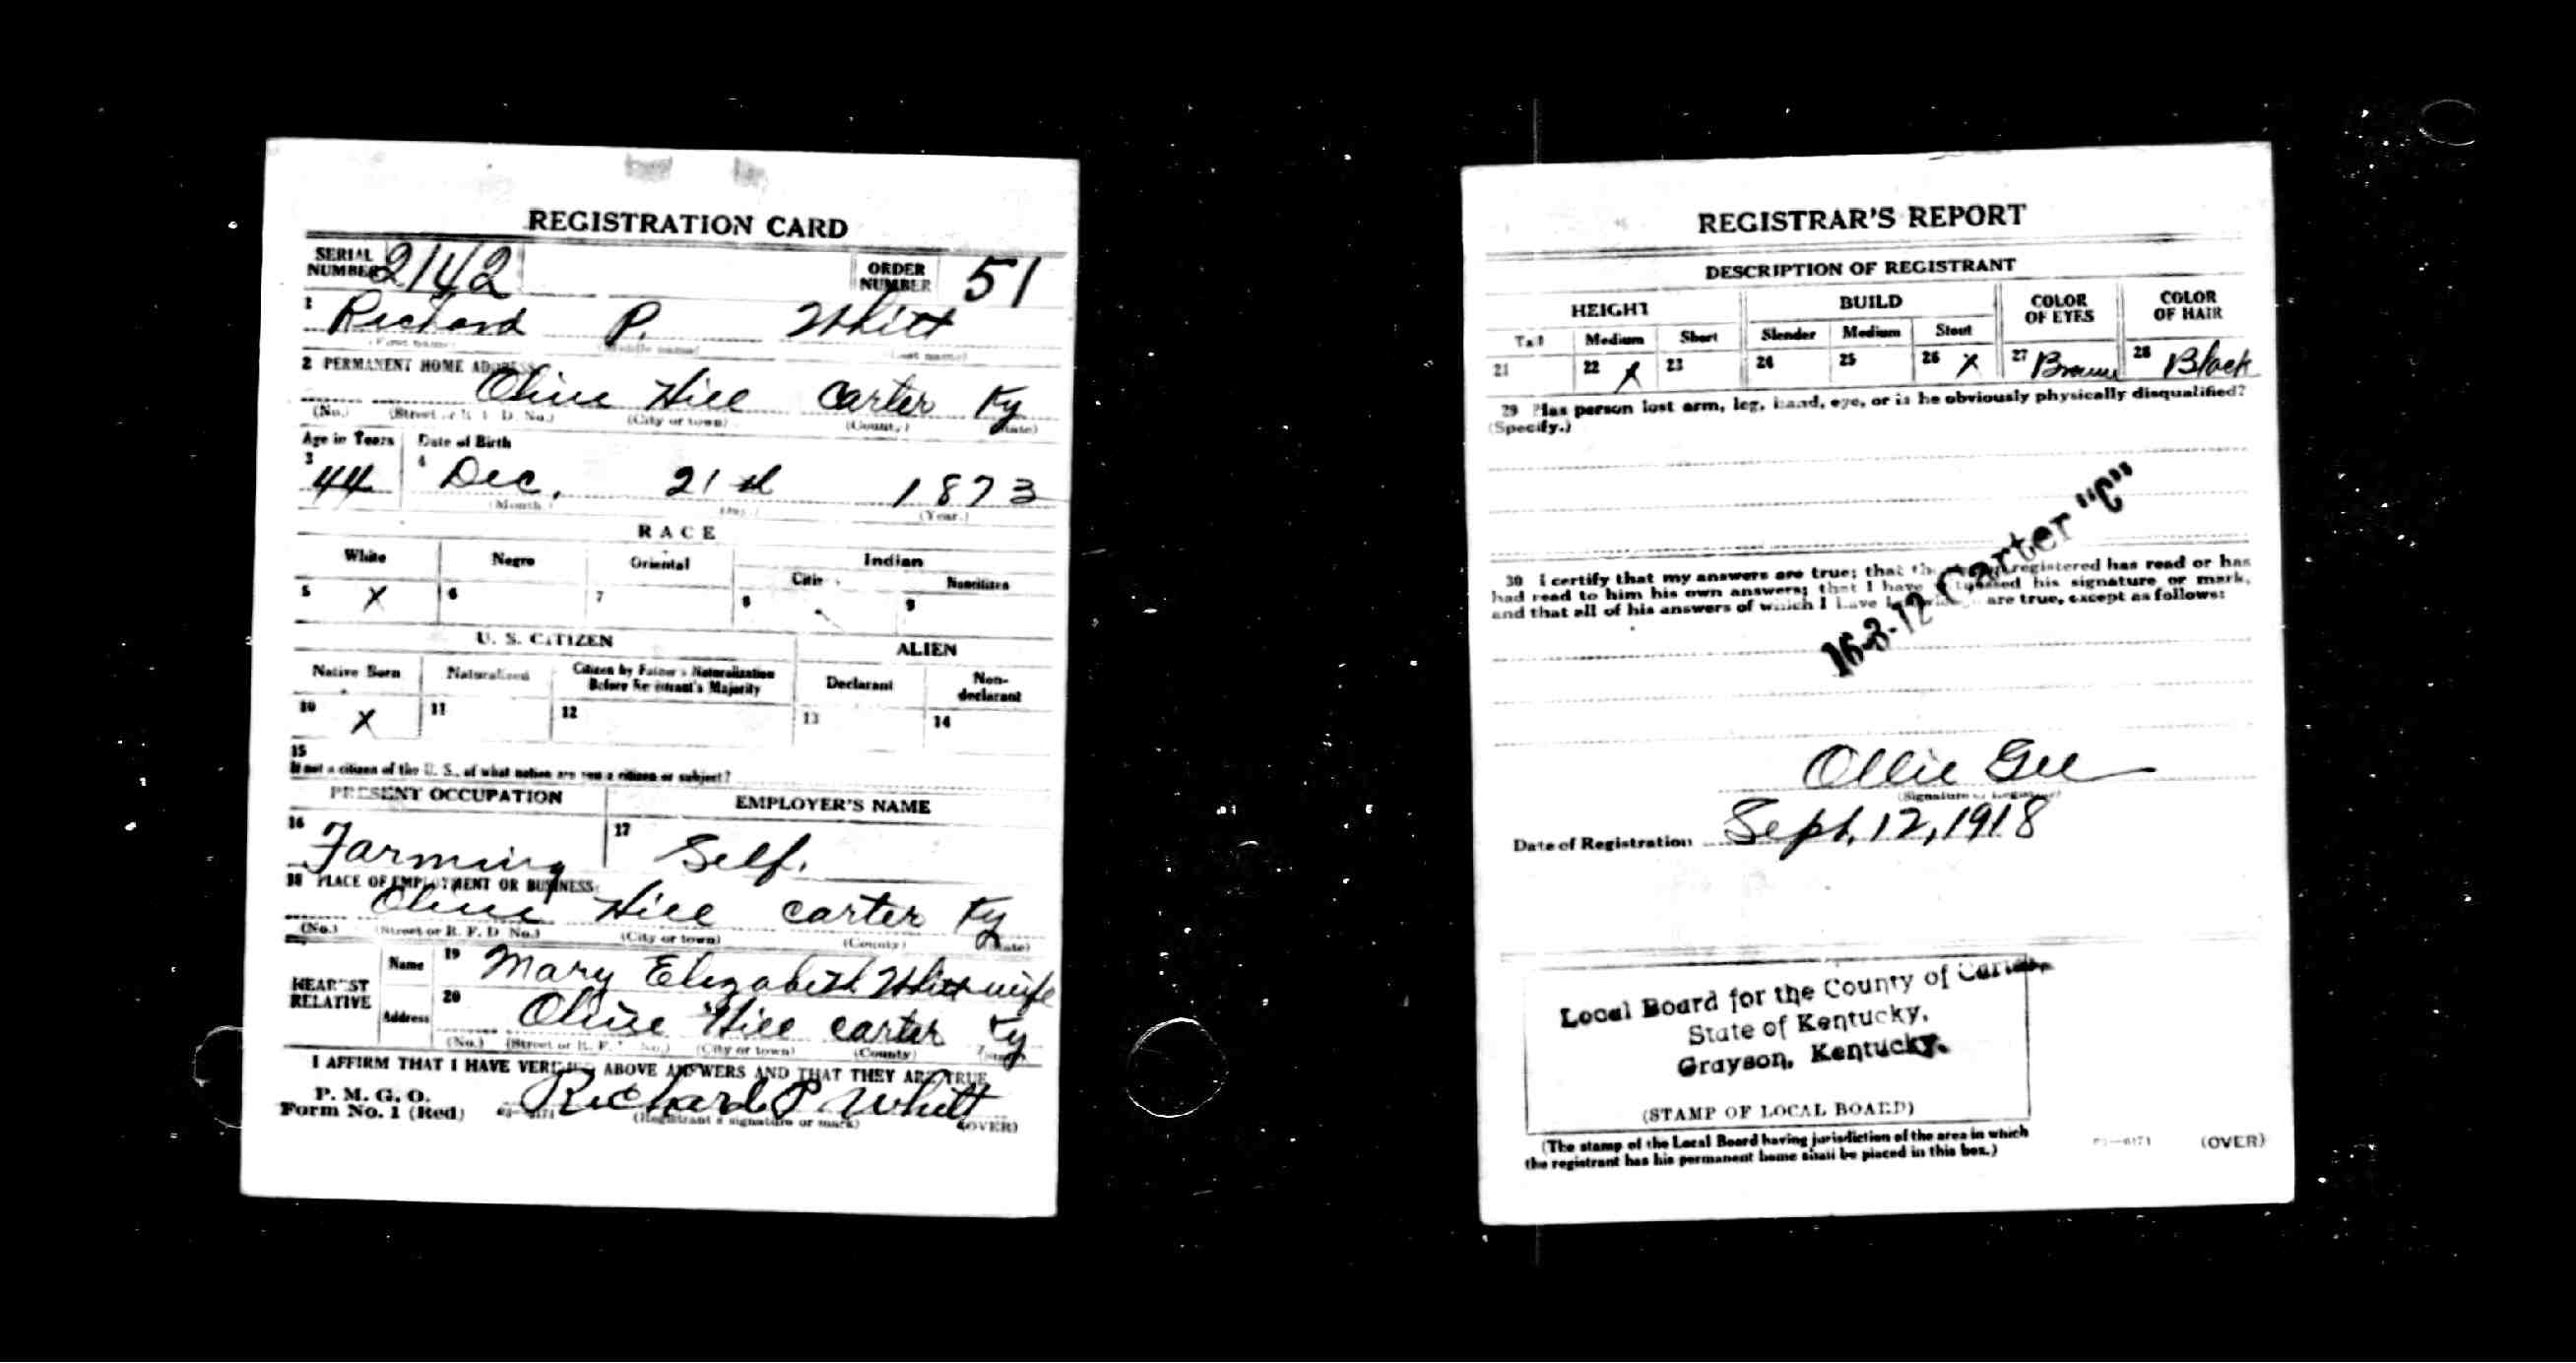 REGISTRATION CARD
SERIAL NUMBER 2142 ORDER NUMBER 51
1 Richard P. Whitt
(First name) (Middle name) (Last name)
2 PERMANENT HOME ADDRESS:
Olive Hill Carter Ky
(No.) (Street or R. F. D. No.) (City or town) (County) (State)
Age in Years Date of Birth
3 44 4 Dec. 21st 1873
(Month.) (Day.) (Year.)
RACE
White Negro Oriental Indian
Citizen Noncitizen
5 X 6 7 8 9
U. S. CITIZEN ALIEN
Native Born Naturalized Citizen by Father's Naturalization Before Registrant's Majority Declarant Non-declarant
10 X 11 12 13 14
15
If not a citizen of the U. S., of what nation are you a citizen or subject?
PRESENT OCCUPATION EMPLOYER'S NAME
16 Farming 17 Self.
18 PLACE OF EMPLOYMENT OR BUSINESS:
Olive Hill Carter Ky
(No.) (Street or R. F. D. No.) (City or town) (County) (State)
NEAREST RELATIVE Name 19 Mary Elizabeth Whitt wife
Address 20 Olive Hill Carter Ky
(No.) (Street or R. F. D. No.) (City or town) (County) (State)
I AFFIRM THAT I HAVE VERIFIED ABOVE ANSWERS AND THAT THEY ARE TRUE
P. M. G. O.
Form No. 1 (Red) Richard P. Whitt
(Registrant's signature or mark) (OVER)
REGISTRAR'S REPORT
DESCRIPTION OF REGISTRANT
HEIGHT BUILD COLOR OF EYES COLOR OF HAIR
Tall Medium Short Slender Medium Stout
21 22 X 23 24 25 26 X 27 Brown 28 Black
29 Has person lost arm, leg, hand, eye, or is he obviously physically disqualified?
(Specify.)
30 I certify that my answers are true; that the person registered has read or has
had read to him his own answers; that I have witnessed his signature or mark,
and that all of his answers of which I have knowledge are true, except as follows:
16-3-12 Carter "C"
Ollie Gee
(Signature of Registrar)
Date of Registration Sept. 12, 1918
Local Board for the County of Carter,
State of Kentucky,
Grayson, Kentucky.
(STAMP OF LOCAL BOARD)
(The stamp of the Local Board having jurisdiction of the area in which
the registrant has his permanent home shall be placed in this box.)
(OVER)